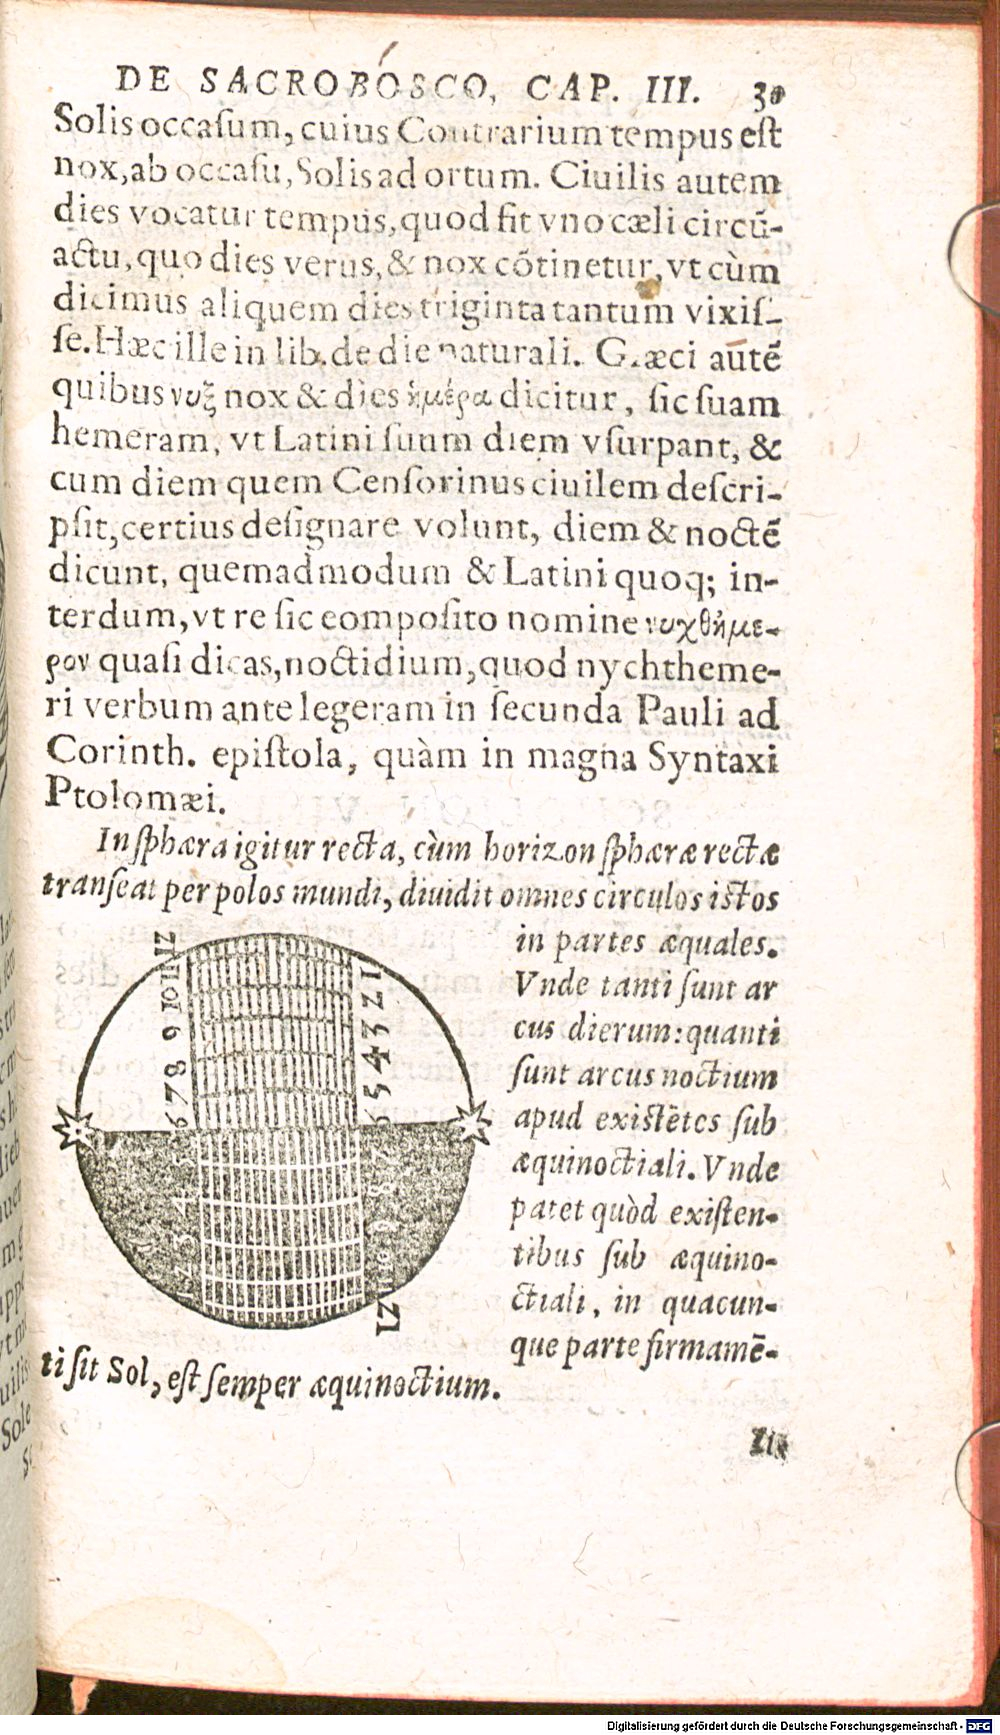 DE SACROBOSCO, CAP. III. 30
Solis occaſum, cuius Contrarium tempus eſt
nox, ab occaſu, Solis ad ortum. Ciuilis autem
dies vocatur tempus, quod fit vno cæli circũ-
actu, quo dies verus, & nox cõtinetur, vt cùm
dicimus aliquem dies triginta tantum vixiſ-
ſe. Hæc ille in lib. de die naturali. Græci autẽ
quibus νυξ nox & dies ἡμέρα dicitur, ſic ſuam
hemeram, vt Latini ſuum diem vſurpant, &
cum diem quem Cenſorinus ciuilem deſcri-
pſit, certius deſignare volunt, diem & noctẽ
dicunt, quemadmodum & Latini quoq; in-
terdum, vt re ſic eompoſito nomine νυχθήμε-
ρον quaſi dicas, noctidium, quod nychtheme-
ri verbum ante legeram in ſecunda Pauli ad
Corinth. epiſtola, quàm in magna Syntaxi
Ptolomæi.
In ſphæra igitur recta, cùm horizon ſphæræ rectæ
tranſeat per polos mundi, diuidit omnes circulos iſtos
in partes æquales.
Vnde tanti ſunt ar
cus dierum: quanti
ſunt arcus noctium
apud exiſtẽtes ſub
æquinoctiali. Vnde
patet quòd exiſten-
tibus ſub æquino-
ctiali, in quacun-
que parte firmamẽ-
ti ſit Sol, eſt ſemper æquinoctium.
12 11 10 9 8 7 6
1 2 3 4 5 6
5 4 3 2
7 8 9 10 11 12
Digitalisierung gefördert durch die Deutsche Forschungsgemeinschaft - DFG